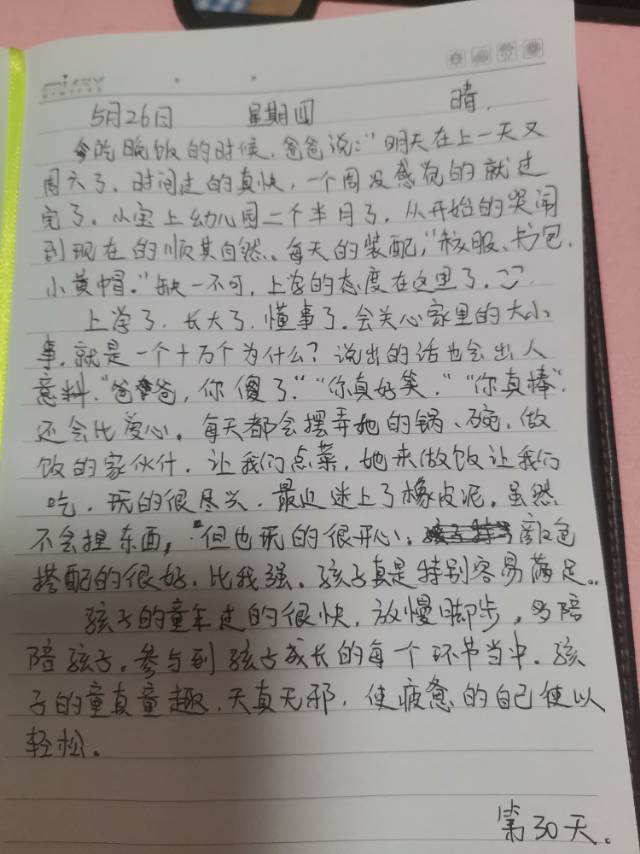 5月26日 星期四 晴.
吃晚饭的时候,爸爸说:“明天在上一天又
周六了.时间过的真快,一个周没感觉的就过
完了.小宝上幼儿园二个半月了.从开始的哭闹
到现在的顺其自然、每天的装配,“校服、书包.
小黄帽.”缺一不可,上学的态度在这里了.
上学了.长大了.懂事了.会关心家里的大小
事.就是一个十万个为什么?说出的话也会出人
意料.“爸爸,你傻了”“你真好笑.”“你真棒”.
还会比爱心。每天都会摆弄她的锅、碗.做
饭的家伙什.让我们点菜,她来做饭让我们
吃.玩的很尽兴.最近迷上了橡皮泥.虽然
不会捏东西,但也玩的很开心;颜色
搭配的很好.比我强.孩子真是特别容易满足..
孩子的童年过的很快,放慢脚步,多陪
陪孩子.参与到孩子成长的每个环节当中.孩
子的童真童趣.天真无邪,使疲惫的自己使以
轻松.
第30天.